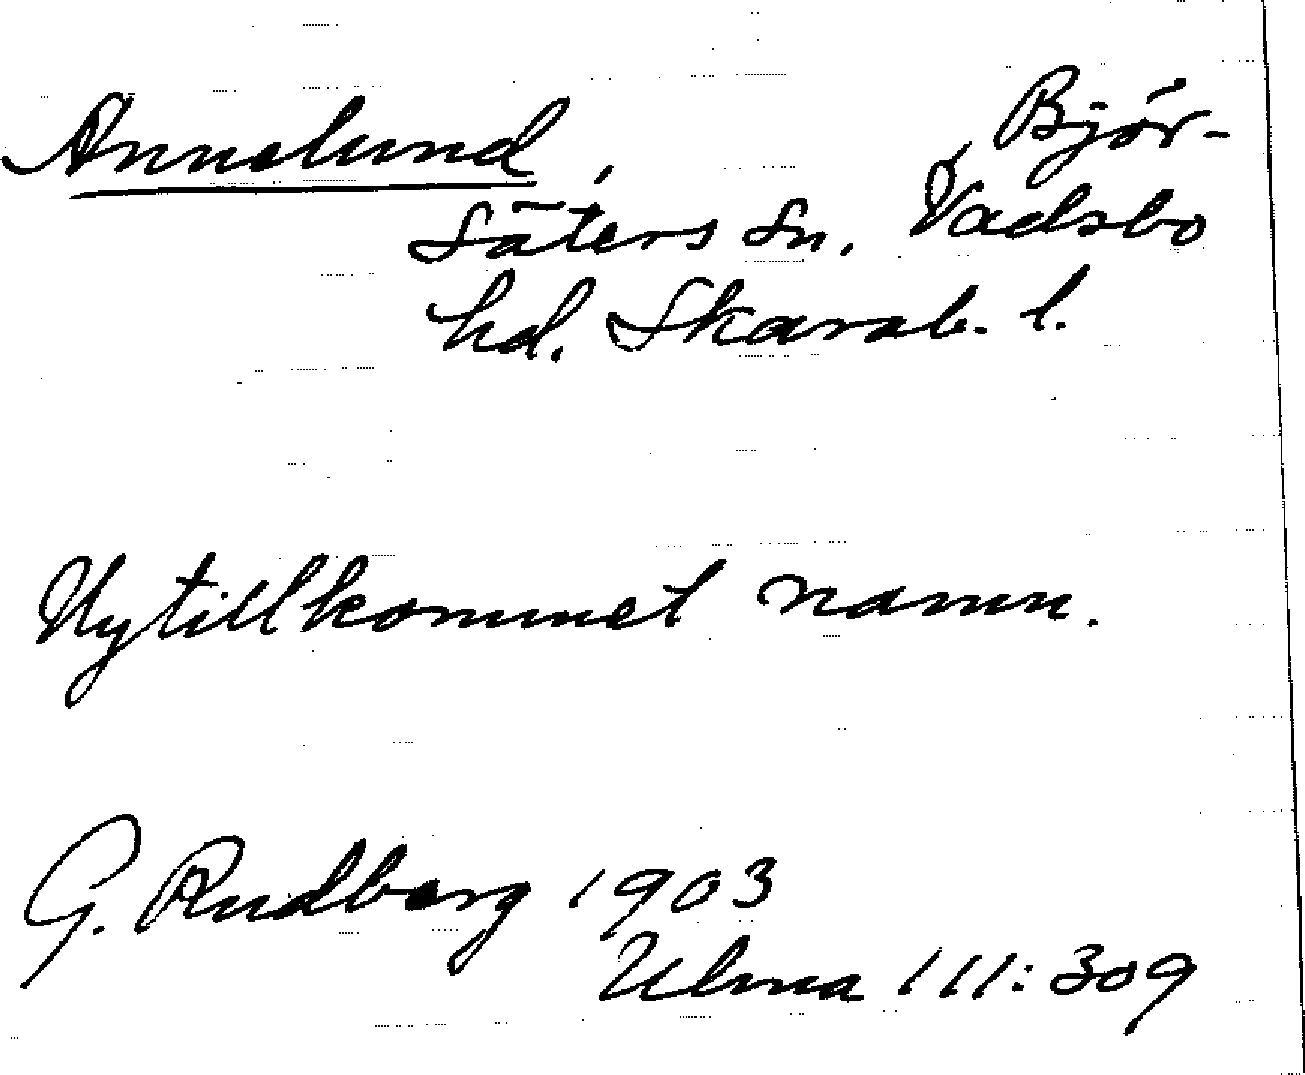 Annelund, Björ-
säters sn, Vadsbo
hd. Skarab. l.
Nytillkommet namn.
G. Rudberg 1903
Ulma 111:309